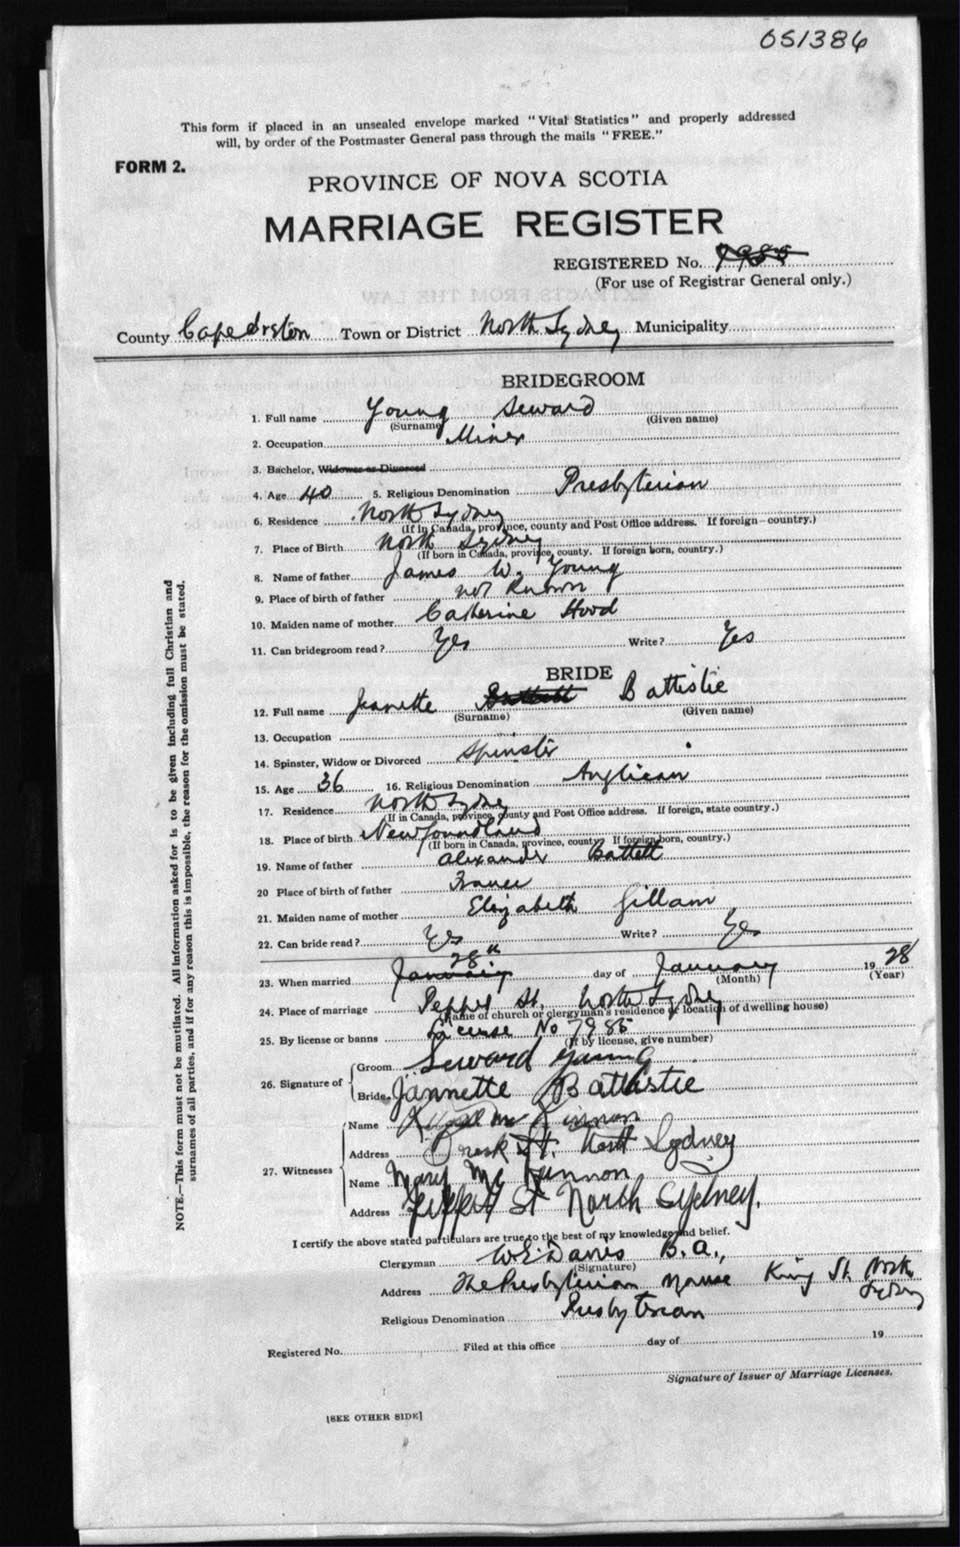 051386
This form if placed in an unsealed envelope marked "Vital Statistics" and properly addressed
will, by order of the Postmaster General pass through the mails "FREE."
FORM 2.
PROVINCE OF NOVA SCOTIA
MARRIAGE REGISTER
REGISTERED No. 7985
(For use of Registrar General only.)
County Cape Breton Town or District North Sydney Municipality
BRIDEGROOM
1. Full name Young Seward
(Surname) (Given name)
2. Occupation Miner
3. Bachelor, Widower or Divorced
4. Age 40 5. Religious Denomination Presbyterian
6. Residence North Sydney
(If in Canada, province, county and Post Office address. If foreign—country.)
7. Place of Birth North Sydney
(If born in Canada, province, county. If foreign born, country.)
8. Name of father James W. Young
9. Place of birth of father not Known
10. Maiden name of mother Catherine Hood
11. Can bridegroom read? Yes Write? Yes
BRIDE
12. Full name Jeanette Battistie
(Surname) (Given name)
13. Occupation
14. Spinster, Widow or Divorced Spinster
15. Age 36 16. Religious Denomination Anglican
17. Residence North Sydney
(If in Canada, province, county and Post Office address. If foreign, state country.)
18. Place of birth Newfoundland
(If born in Canada, province, county. If foreign born, country.)
19. Name of father Alexander Battett
20 Place of birth of father France
21. Maiden name of mother Elizabeth Gillam
22. Can bride read? Yes Write? Yes
28th
23. When married January day of January 1928
(Month) (Year)
24. Place of marriage Peppet St. North Sydney
(Name of church or clergyman's residence or location of dwelling house)
25. By license or banns License No 7985
(If by license, give number)
26. Signature of Groom Seward Young
Bride Jannette Battistie
27. Witnesses Name
Address St. North Sydney
Name Mary Mc Kinnon
Address Peppett St North Sydney.
I certify the above stated particulars are true to the best of my knowledge and belief.
Clergyman W.E. Davis B.A.,
(Signature)
Address The Presbyterian Manse King St. North
Sydney
Religious Denomination Presbyterian
Registered No. Filed at this office day of 19
Signature of Issuer of Marriage Licenses.
[SEE OTHER SIDE]
NOTE.—This form must not be mutilated. All information asked for is to be given including full Christian and
surnames of all parties, and if for any reason this is impossible, the reason for the omission must be stated.